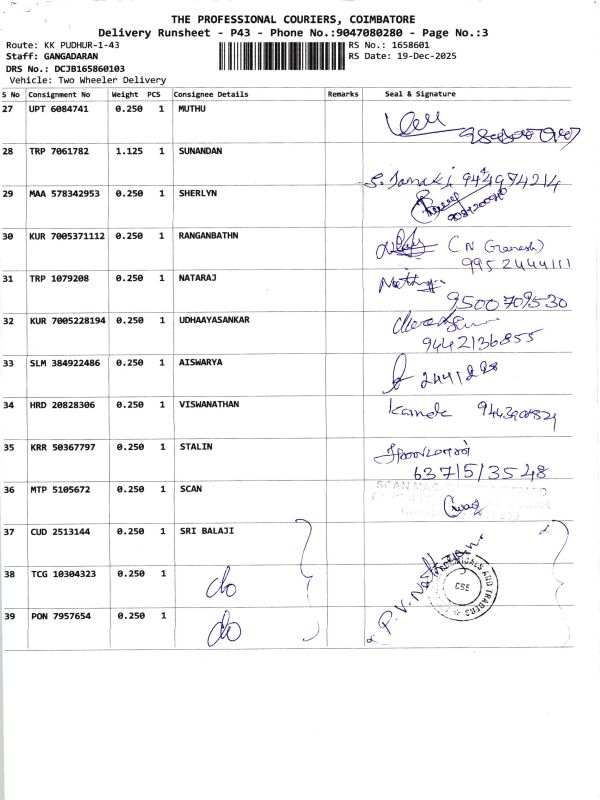 THE PROFESSIONAL COURIERS, COIMBATORE
Delivery Runsheet - P43 - Phone No.:9047080280 - Page No.:3
Route: KK PUDHUR-1-43 RS No.: 1658601
Staff: GANGADARAN RS Date: 19-Dec-2025
DRS No.: DCJB165860103
Vehicle: Two Wheeler Delivery
S No Consignment No Weight PCS Consignee Details Remarks Seal & Signature
27 UPT 6084741 0.250 1 MUTHU
28 TRP 7061782 1.125 1 SUNANDAN
29 MAA 578342953 0.250 1 SHERLYN
30 KUR 7005371112 0.250 1 RANGANBATHN (N Ganesh)
9952444111
31 TRP 1079208 0.250 1 NATARAJ
9500709530
32 KUR 7005228194 0.250 1 UDHAAYASANKAR
9442136855
33 SLM 384922486 0.250 1 AISWARYA
34 HRD 20828306 0.250 1 VISWANATHAN
35 KRR 50367797 0.250 1 STALIN
6371513548
36 MTP 5105672 0.250 1 SCAN
37 CUD 2513144 0.250 1 SRI BALAJI
38 TCG 10304323 0.250 1 do
39 PON 7957654 0.250 1 do
CBE